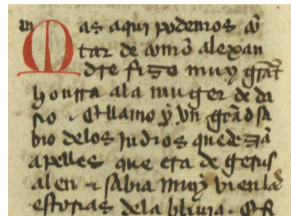 Mas aqui podemos cō
tar de como alexan
dre fizo muy grāt
honrra ala muger de da
rio · Et llamo y vn grād sa
bio delos judios que deziā
apelles que era de gerus
alen · sabia muy bien las
estorias dela bliuia ·